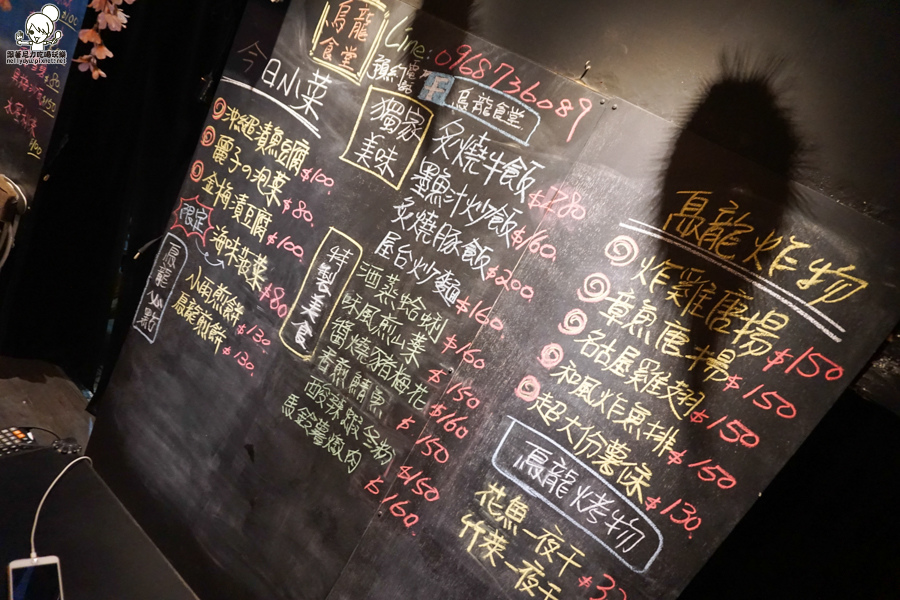 跟著尼力吃喝玩樂
nellyyu.pixnet.net
今日小菜
漬魚豆腐 $100.
麗子の泡菜 $80.
金梅漬豆腐 $100.
限定
海味裙菜 $80
烏龍小點
小町煎餅 $130.
烏龍煎餅 $130.
烏龍食堂
Line:
預約電話
0968736089
烏龍食堂
獨家美味
炙燒牛飯 $280
墨魚汁炒飯 $160.
炙燒豚飯 $200.
屋台炒麵 $160
特製美食
酒蒸蛤蜊 $160
和風煎山藥 $150
醬燒豬梅花 $160
香煎鯖魚 $150
酸辣蝦冬粉 $150
馬鈴薯燉肉 $160.
烏龍炸物
炸雞唐揚 $150
章魚唐揚 $150
名古屋雞翅 $150
和風炸魚排 $150
超大份薯條 $130.
烏龍烤物
花魚一夜干
竹筴一夜干